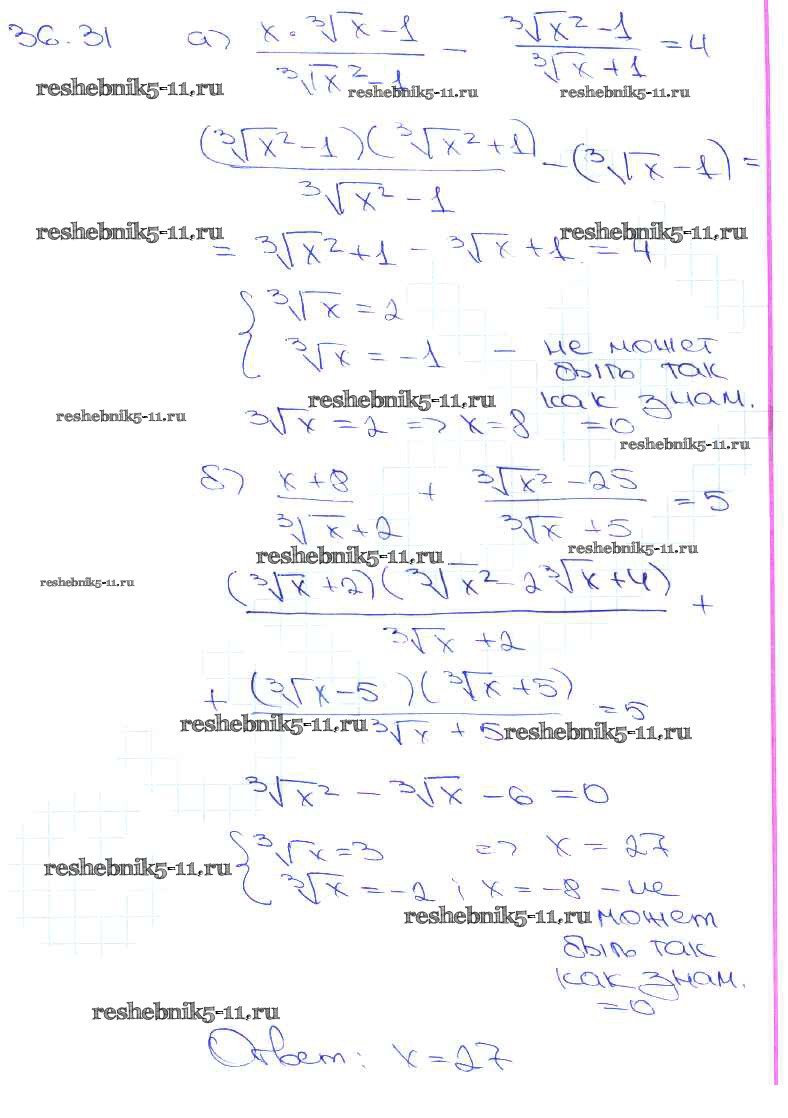 36.31 а) (x·∛x - 1)/(∛x² - 1) - (∛x² - 1)/(∛x + 1) = 4
reshebnik5-11,ru reshebnik5-11.ru reshebnik5-11.ru
((∛x² - 1)(∛x² + 1))/(∛x² - 1) - (∛x - 1) =
reshebnik5-11,ru reshebnik5-11,ru
= ∛x² + 1 - ∛x + 1 = 4
{ ∛x = 2
∛x = -1 - не может
быть так
reshebnik5-11,ru как знам.
reshebnik5-11.ru ∛x = 2 => x = 8 = 0
reshebnik5-11.ru
б) (x + 8)/(∛x + 2) + (∛x² - 25)/(∛x + 5) = 5
reshebnik5-11,ru reshebnik5-11.ru
reshebnik5-11.ru
((∛x + 2)(∛x² - 2∛x + 4))/(∛x + 2) +
+ ((∛x - 5)(∛x + 5))/(∛x + 5) = 5
reshebnik5-11,ru reshebnik5-11,ru
∛x² - ∛x - 6 = 0
{ ∛x = 3 => x = 27
reshebnik5-11,ru
∛x = -2 ; x = -8 - не
reshebnik5-11,ru может
быть так
как знам.
= 0
reshebnik5-11,ru
Ответ: x = 27